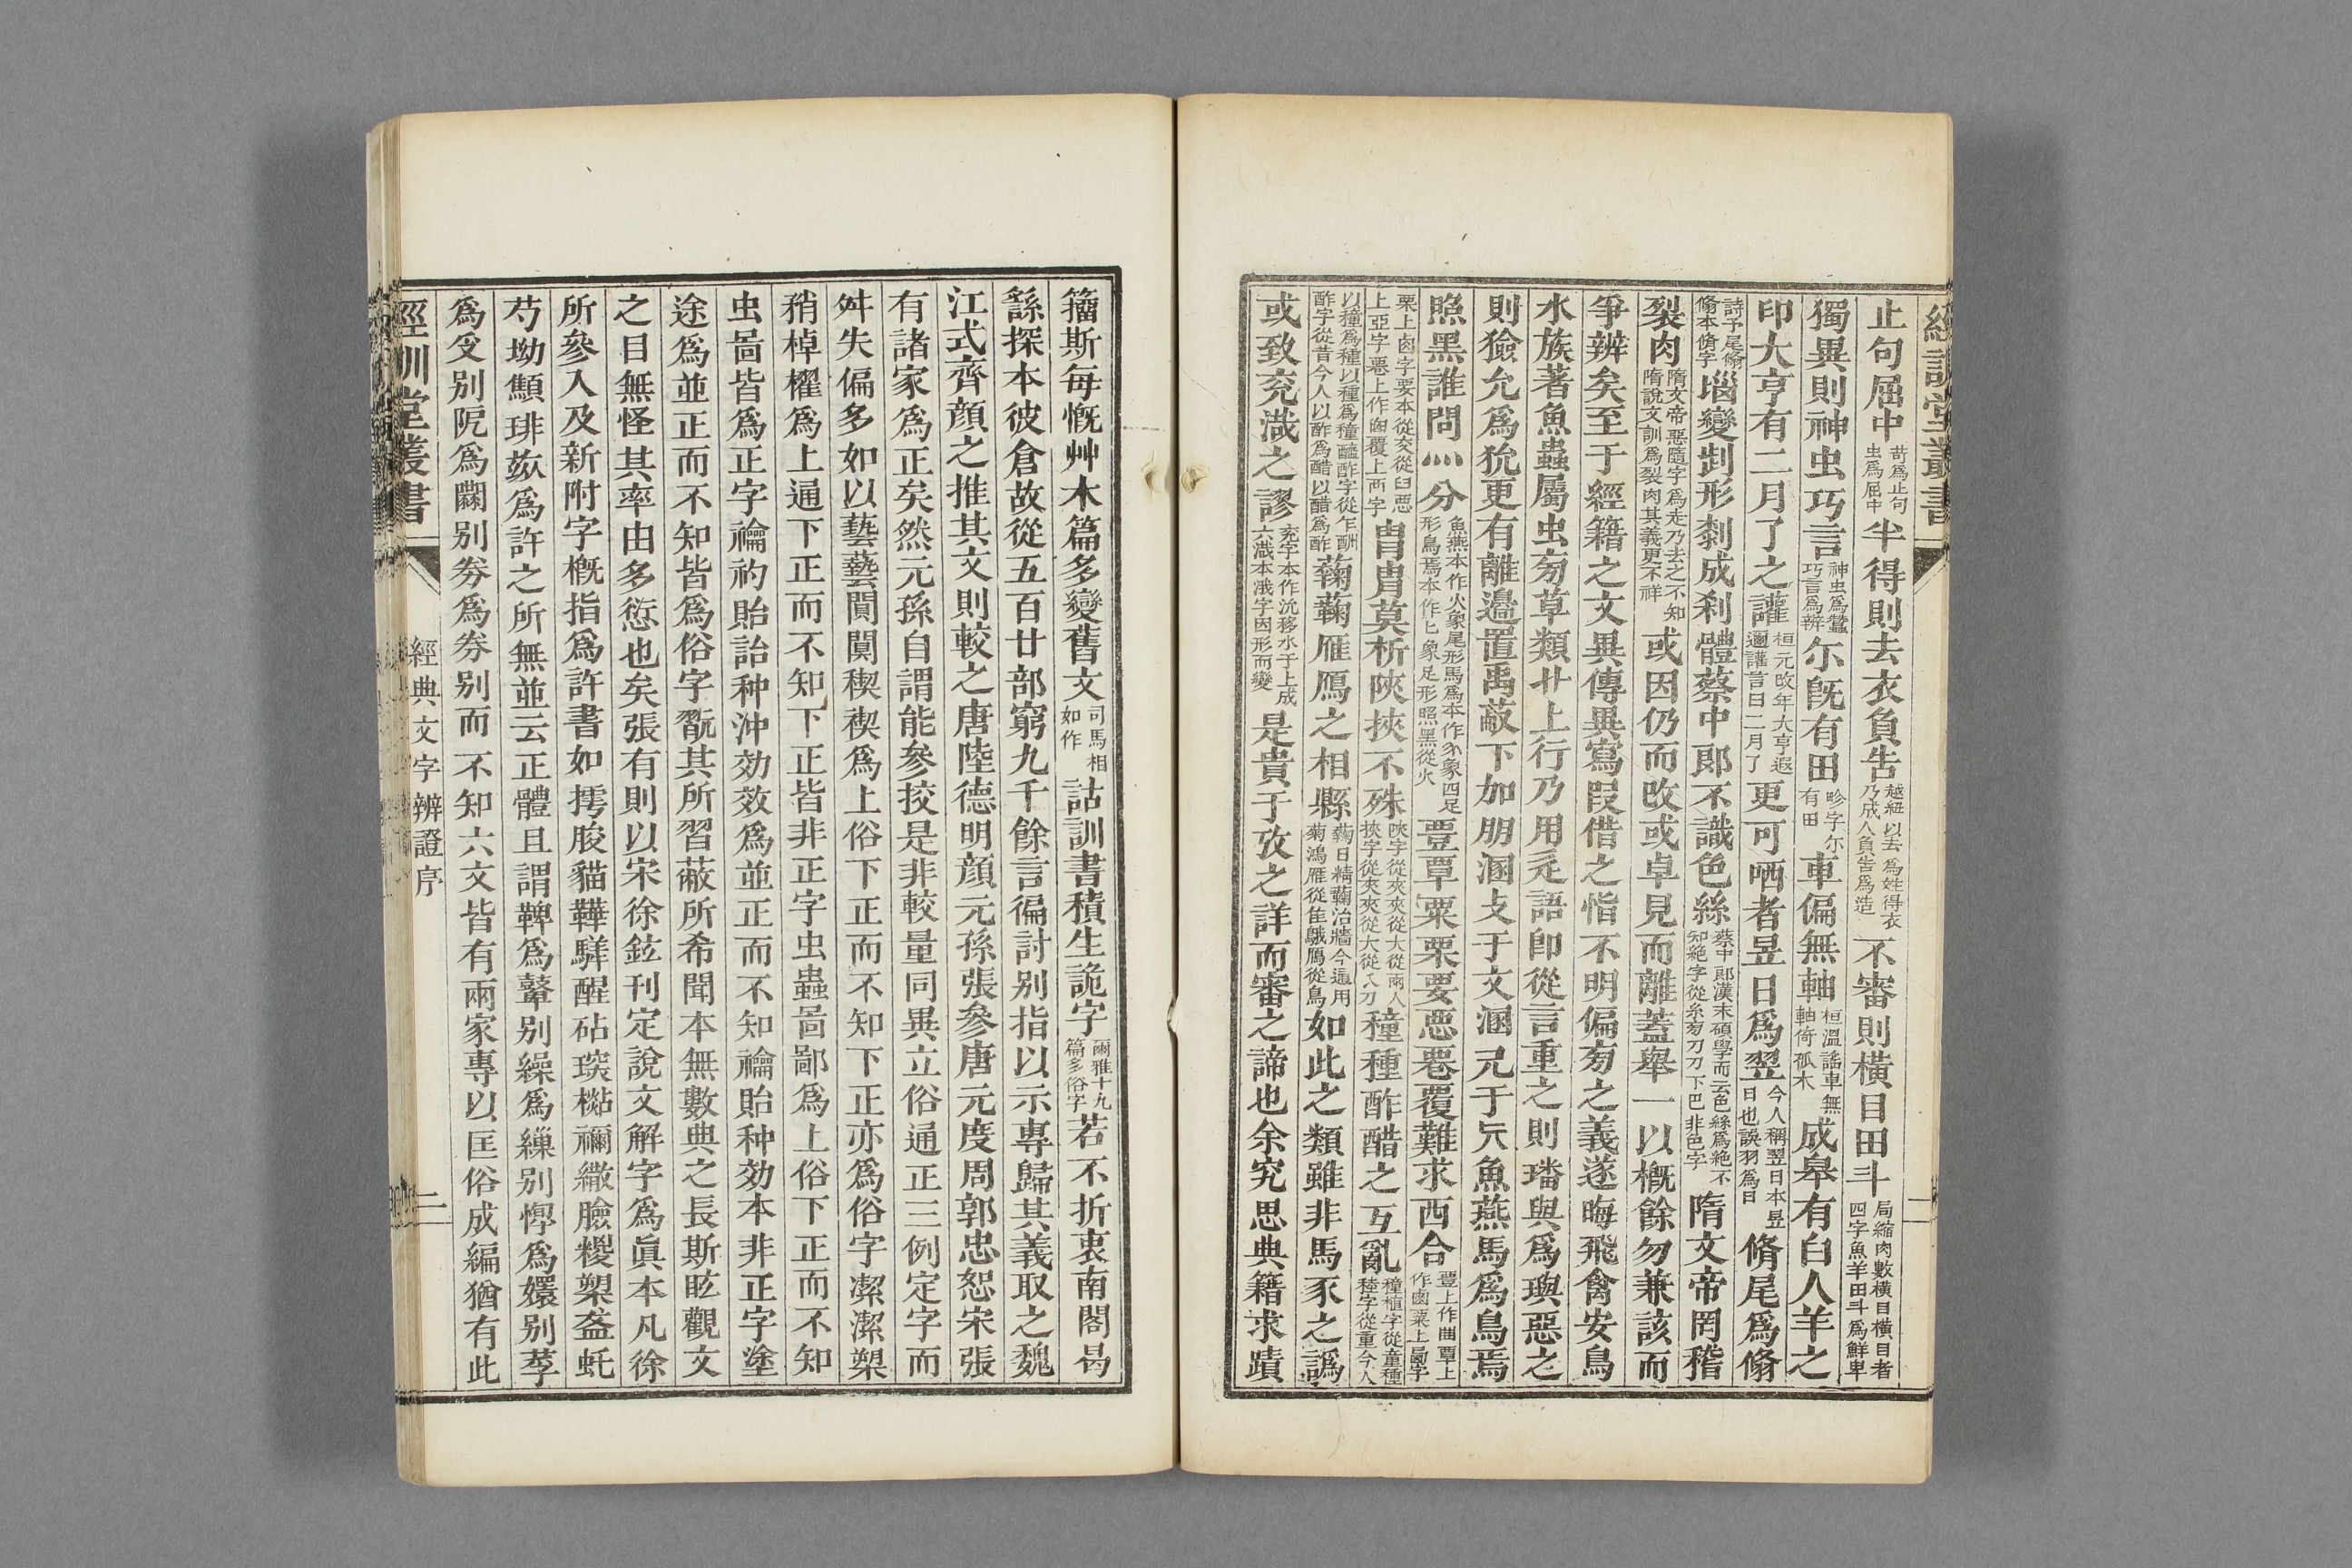 經訓堂叢書
止句屈中苛爲止句虫爲屈中半得則去衣負告越紐以去爲姓得衣乃成人負告爲造不審則橫目田斗局縮肉數橫目橫目者四字魚羊田斗爲鮮卑
獨異則神虫巧言神虫爲蠶巧言爲辨尓旣有田畛字尔有田車偏無軸桓溫謠車無軸倚孤木成皋有白人羊之
印大亨有二月了之讙桓元改年大亨遐邇讙言曰二月了更可哂者昱日爲翌今人稱翌日本昱日也誤羽爲日脩尾爲翛
詩予尾翛翛本脩字㙠變剘形剢成刹體蔡中郎不識色絲蔡中郎漢末碩學而云色絲爲絶不知絶字從糸刀下巴非色字隋文帝罔稽
裂肉隋文帝惡隨字爲走乃去之不知隋說文訓爲裂肉其義更不祥或因仍而改或卓見而離蓋舉一以槪餘勿兼該而
爭辨矣至于經籍之文異傳異寫叚借之恉不明偏㫄之義遂晦飛禽安鳥
水族著魚蟲屬虫㫄草類艹上行乃用辵語卽從言重之則璠與爲璵惡之
則獫允爲狁更有離邉置禹蔽下加朋溷支于文溷旡于旡魚燕馬爲鳥焉
照黑誰問灬分魚燕本作火象尾形馬爲本作灬象四足形鳥焉本作匕象足形照黑從火覀覃粟栗要惡罨覆難求西合豐上作曲覃上作鹵粟上𠧪字
栗上卤字要本從㚇從臼惡上亞字罨上作网覆上襾字冑胄莫析陝挾不殊陝字從夾夾從大從兩人挾字從夾夾從大從八刀穜種酢醋之互亂穜植字從童種稑字從重今人
以穜爲種以種爲穜醯酢字從乍酬酢字從昔今人以酢爲醋以醋爲酢蘜蘜雁鴈之相縣蘜日精蘜治牆今通用菊鴻雁從隹鵝鴈從鳥如此之類雖非馬豕之譌
或致兖濊之謬兖字本作沇移水于上成六濊本濊字因形而變是貴于攷之詳而審之諦也余究思典籍求蹟
籒斯每慨艸木篇多變舊文司馬相如作詁訓書積生詭字爾雅十九篇多俗字若不折衷南閣曷
繇探本彼倉故從五百廿部窮九千餘言徧討别指以示專歸其義取之魏
江式齊顔之推其文則較之唐陸德明顔元孫張參唐元度周郭忠恕宋張
有諸家爲正矣然元孫自謂能參挍是非較量同異立俗通正三例定字而
舛失偏多如以藝蓺閴闃稧禊爲上俗下正而不知下正亦爲俗字潔㓗槼
矟棹櫂爲上通下正而不知下正皆非正字虫蟲啚鄙爲上俗下正而不知
虫啚皆爲正字禴礿貽詒种沖効效爲並正而不知禴貽种効本非正字塗
途爲並正而不知皆爲俗字翫其所習蔽所希聞本無數典之長斯眩觀文
之目無怪其率由多愆也矣張有則以宋徐鉉刊定說文解字爲眞本凡徐
所參入及新附字槪指爲許書如摴朘貓韡騂醒砧琰櫾禰繖臉糉槊盋蚝
芍坳顦琲茘爲許之所無並云正體且謂鞞爲鼙别繰爲繅别惸爲嬛别荸
爲㝊别阮爲䦨别劵爲券别而不知六文皆有兩家專以匡俗成編猶有此
經訓堂叢書
經典文字辨證序
二